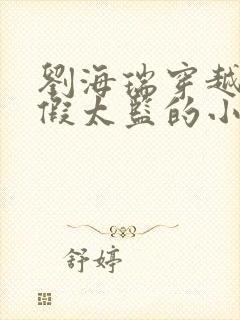 劉海瑞穿越
假太監的小
舒婷